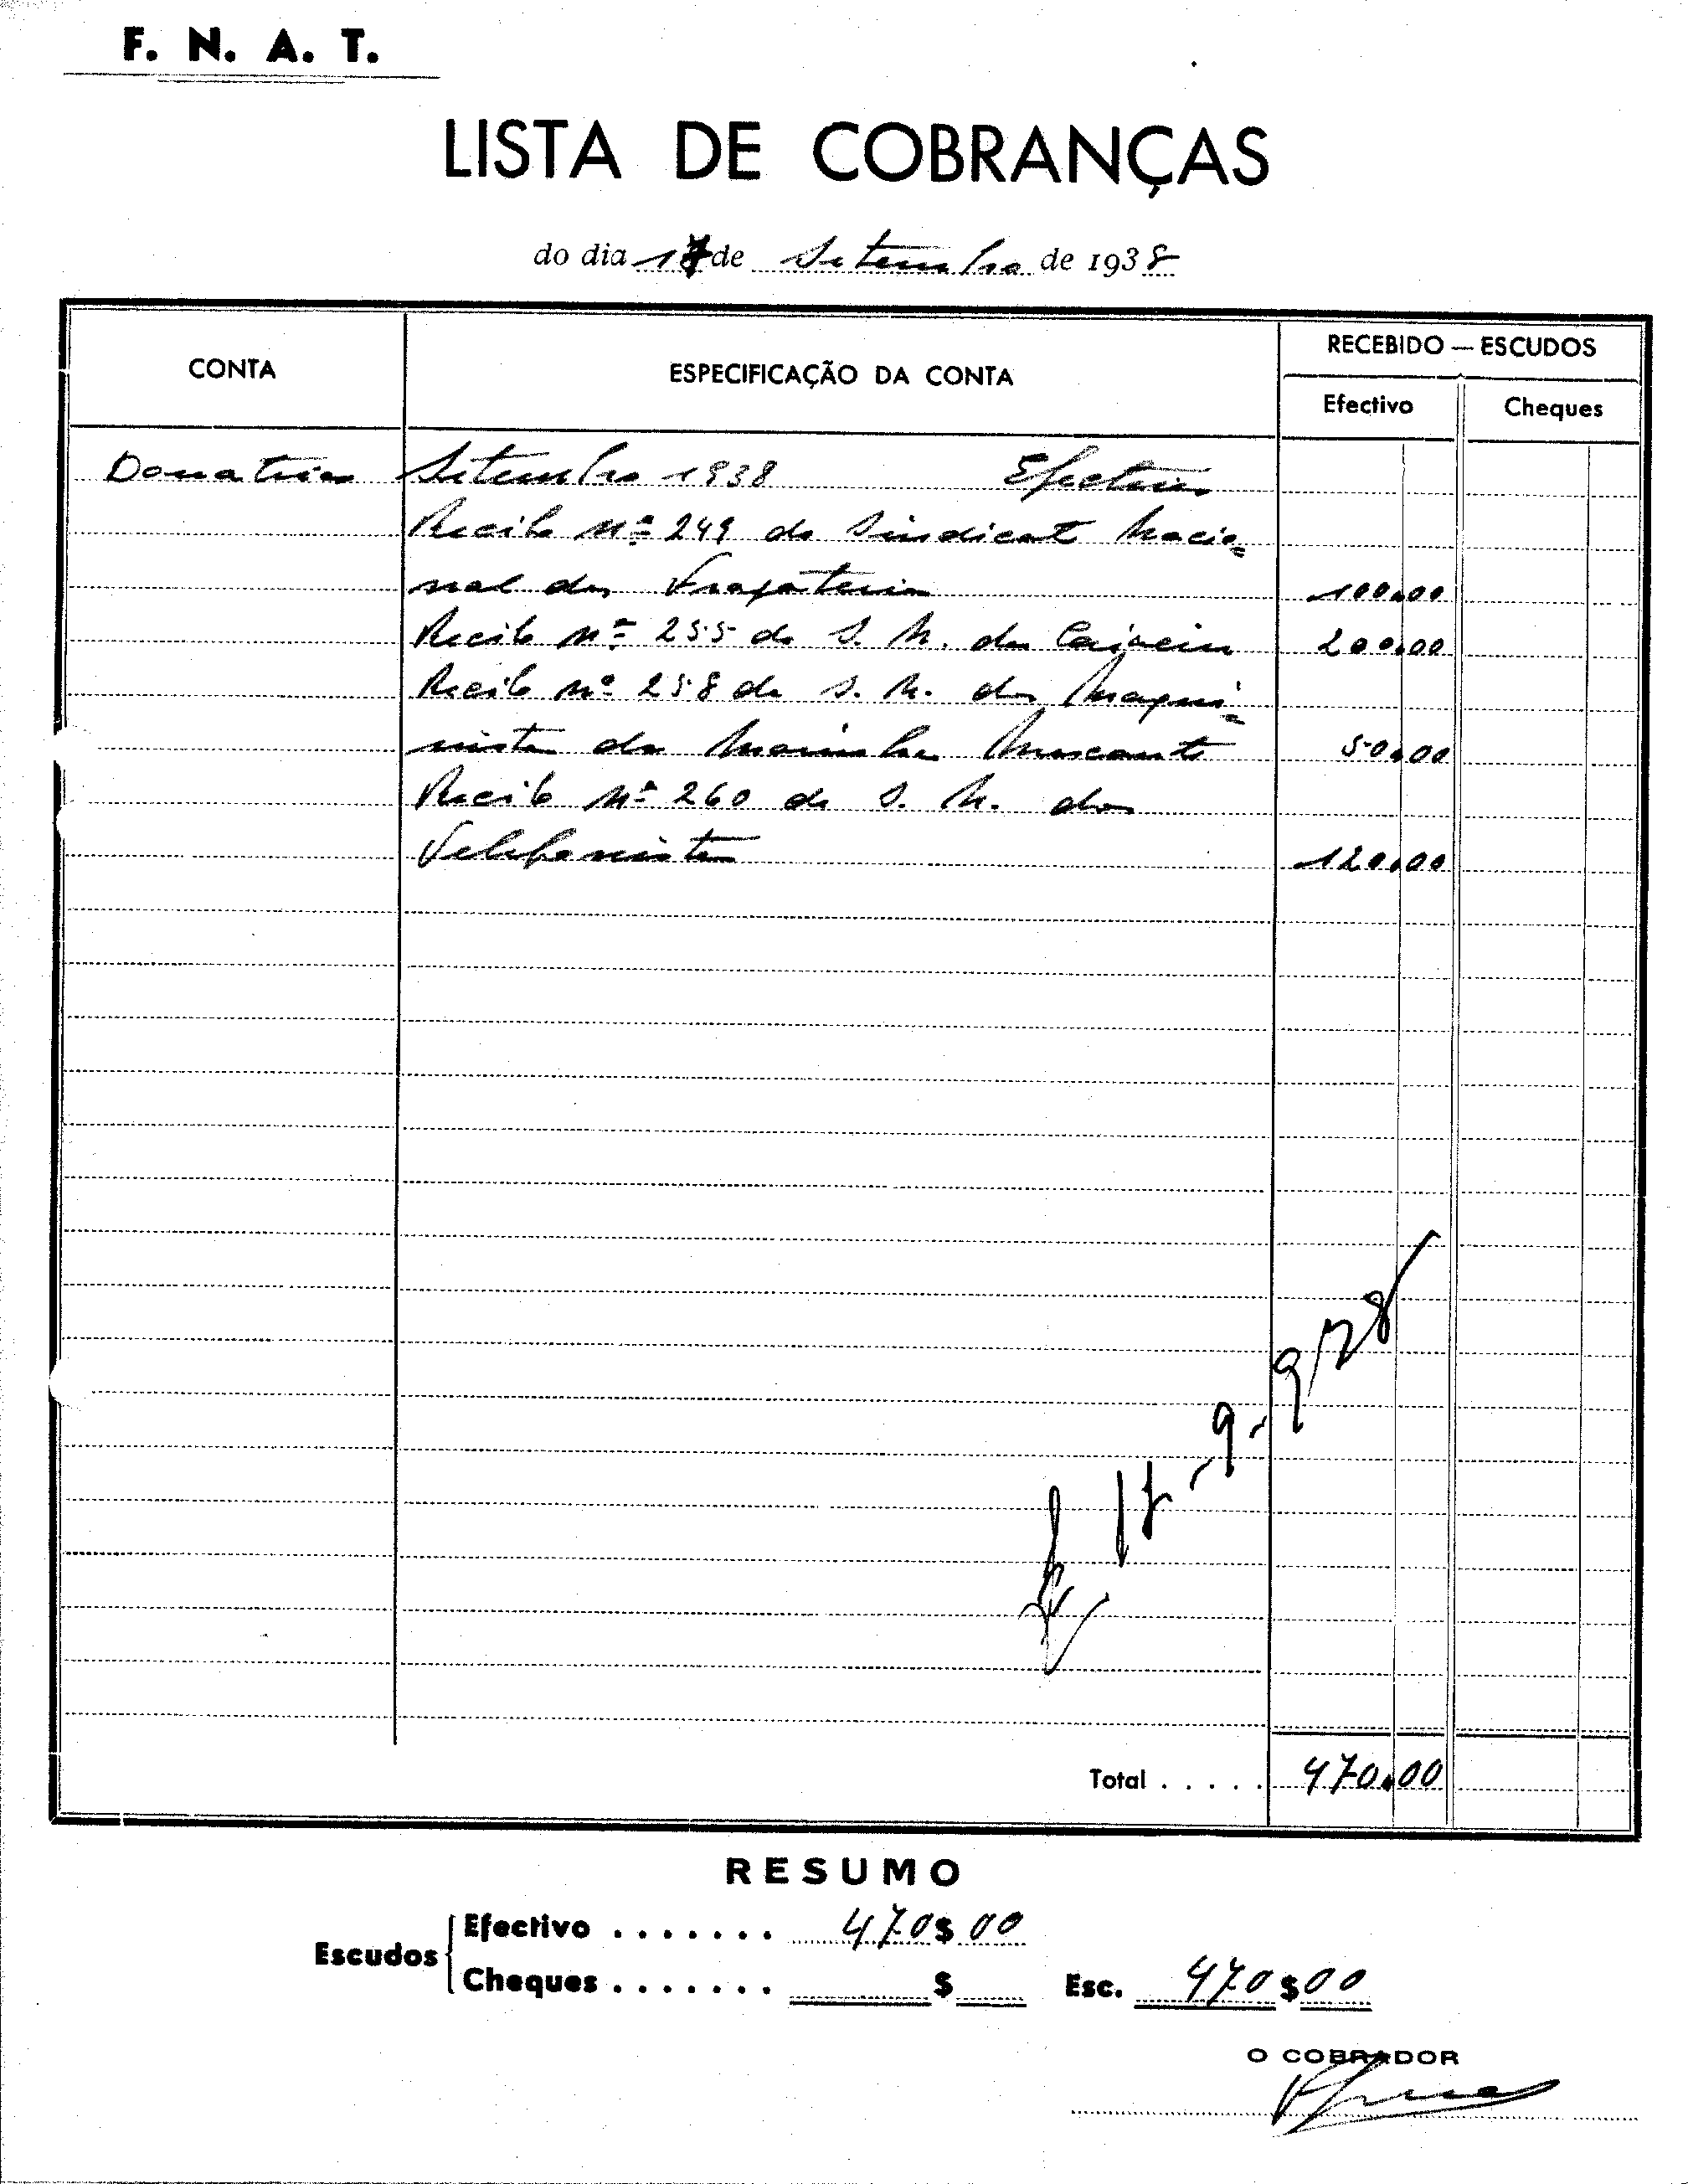 F. N. A. T.
LISTA DE COBRANÇAS
do dia 17 de Setembro de 1938
CONTA ESPECIFICAÇÃO DA CONTA RECEBIDO — ESCUDOS
Efectivo Cheques
Donativos Setembro 1938 Efectivos
Recibo Nº 249 do Sindicato Nacio=
nal dos Fragateiros 100.00
Recibo Nº 255 do S. N. dos Caixeiros 200.00
Recibo Nº 258 do S. N. dos Maqui=
nistas da Marinha Mercante 50.00
Recibo Nº 260 do S. N. dos
Telefonistas 120.00
17-9-938
Total . . . . . 470.00
RESUMO
Escudos
Efectivo . . . . . . . 470$00
Cheques . . . . . . . $ Esc. 470$00
O COBRADOR